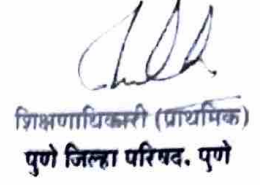 शिक्षणाधिकारी (प्राथमिक)
पुणे जिल्हा परिषद. पुणे